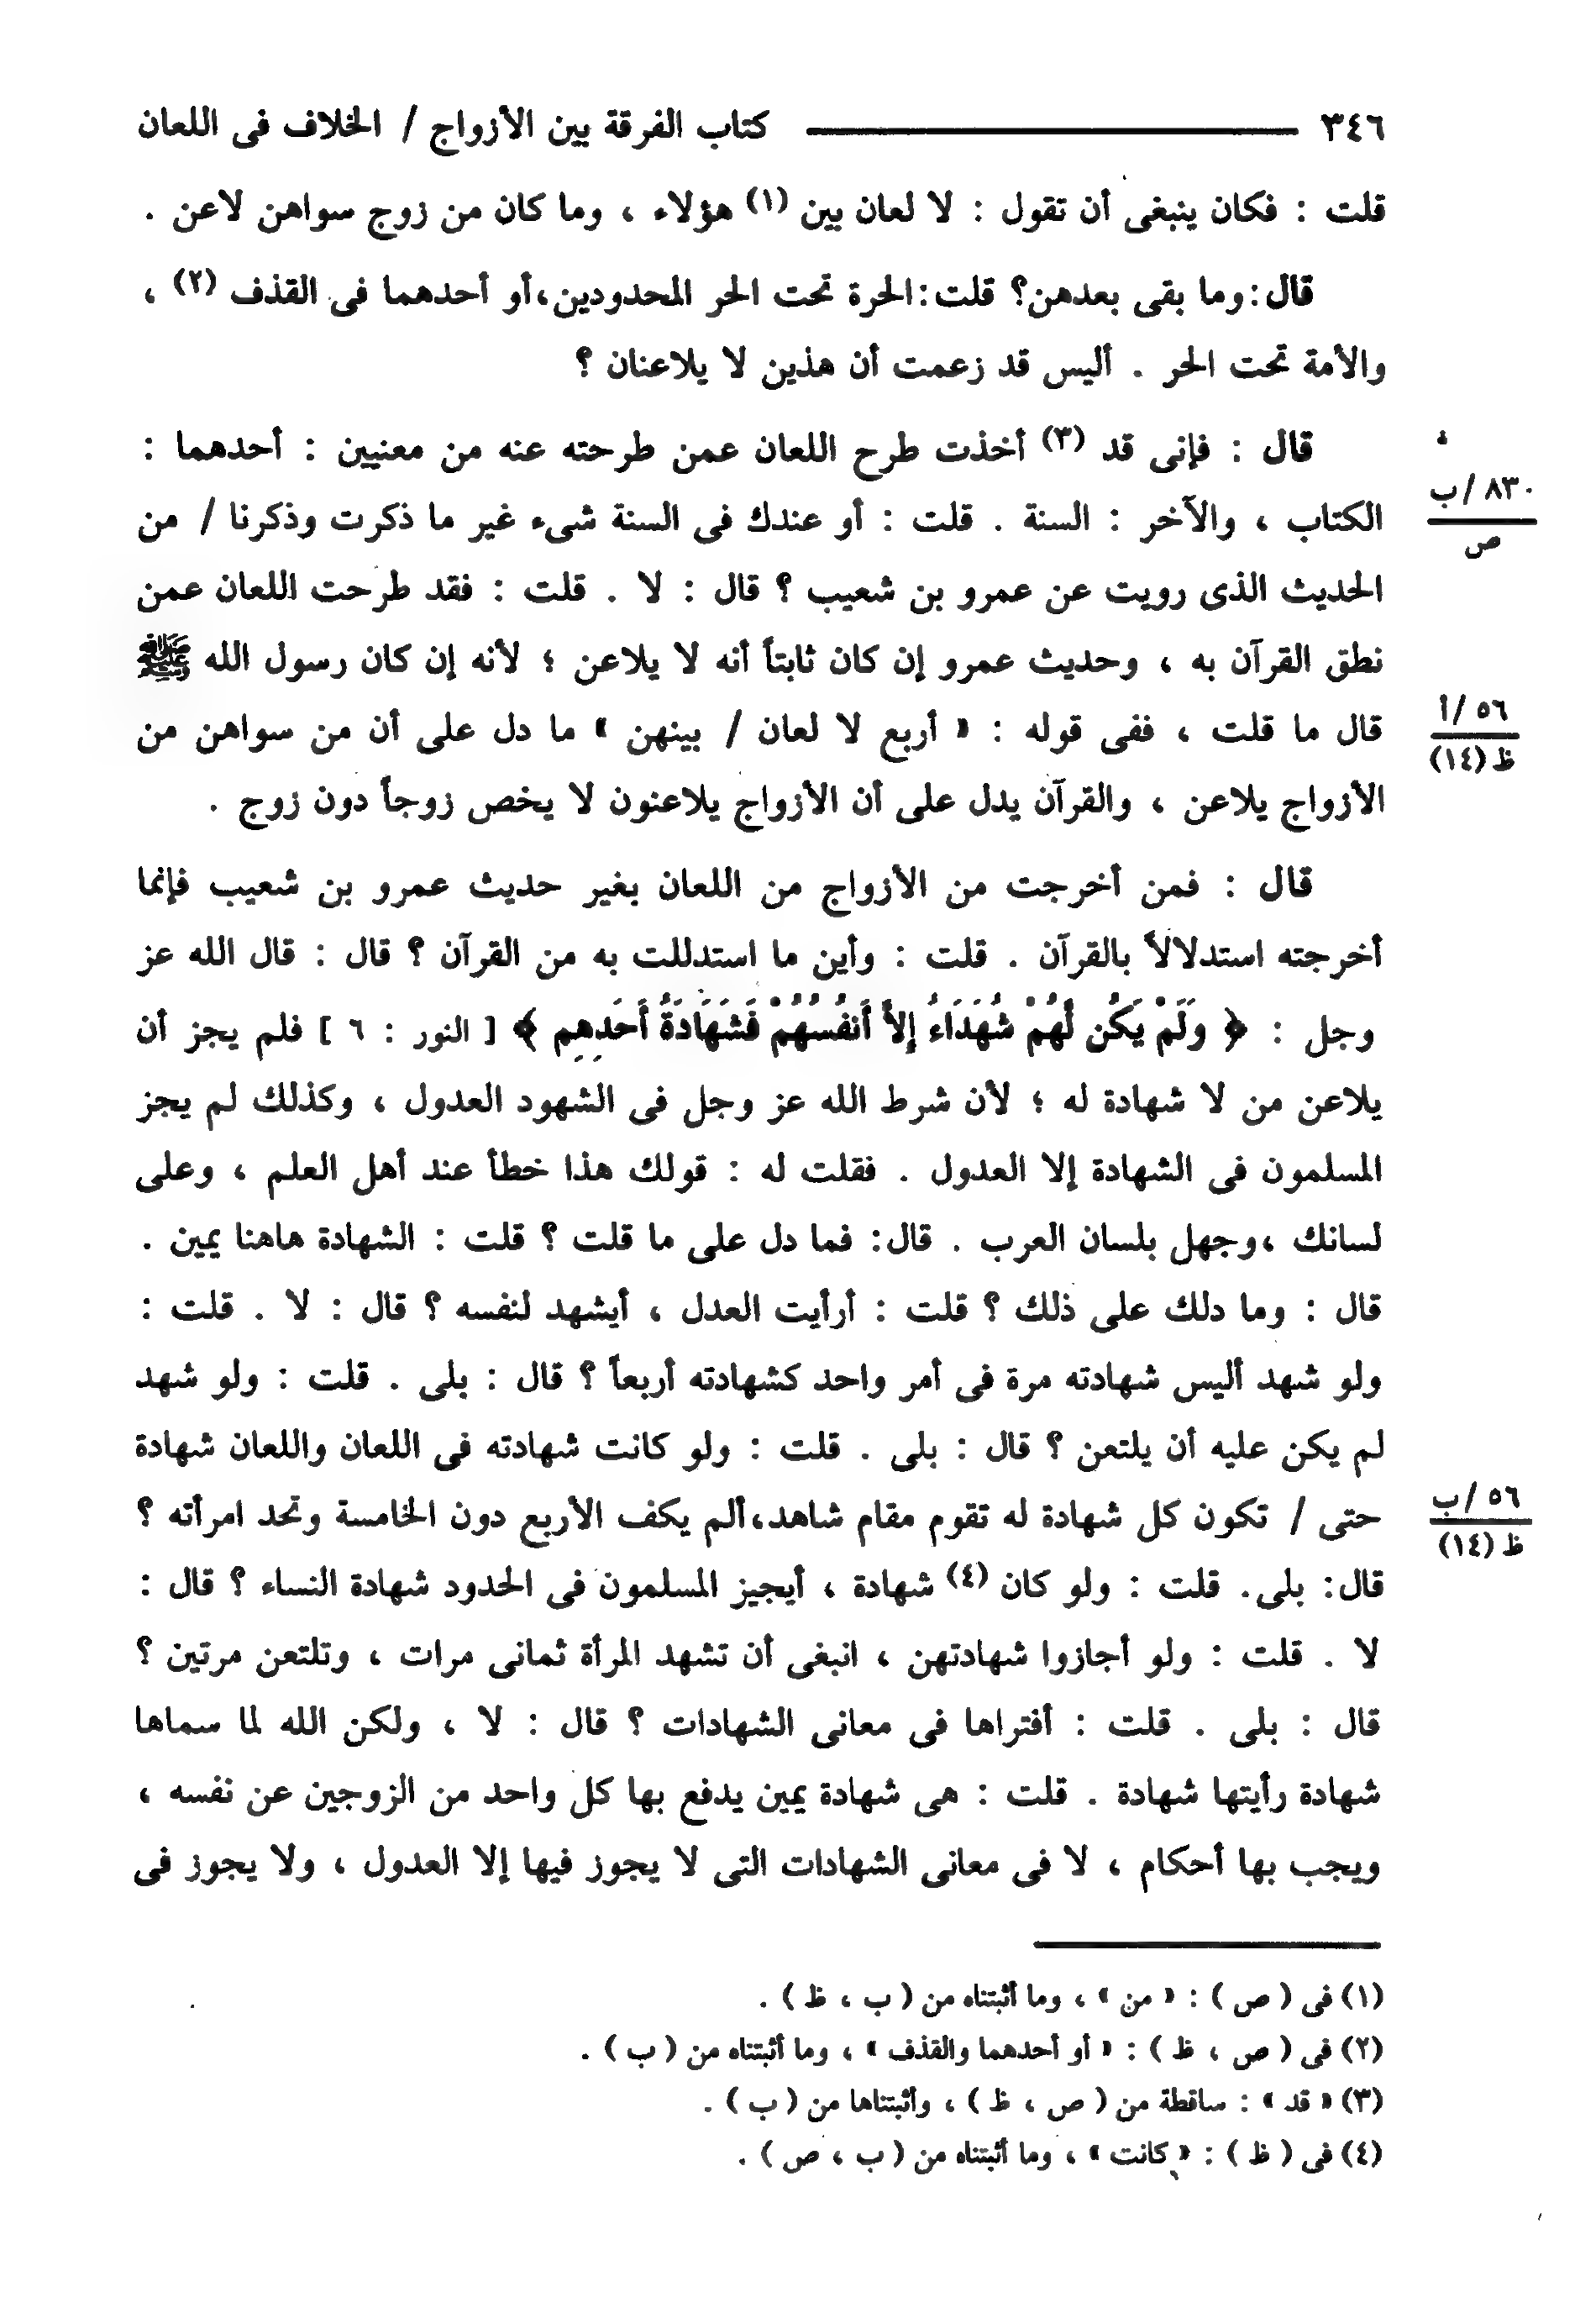 ٣٤٦ كتاب الفرقة بين الأزواج / الخلاف فى اللعان
قلت : فكان ينبغى أن تقول : لا لعان بين (١) هؤلاء ، وما كان من زوج سواهن لاعن .
قال : وما بقى بعدهن؟ قلت : الحرة تحت الحر المحدودين،أو أحدهما فى القذف (٢) ،
والأمة تحت الحر . أليس قد زعمت أن هذين لا يلاعنان ؟
قال : فإنى قد (٣) أخذت طرح اللعان عمن طرحته عنه من معنيين : أحدهما :
٨٣٠ /ب
ص
الكتاب ، والآخر : السنة . قلت : أو عندك فى السنة شىء غير ما ذكرت وذكرنا / من
الحديث الذى رويت عن عمرو بن شعيب ؟ قال : لا . قلت : فقد طرحت اللعان عمن
نطق القرآن به ، وحديث عمرو إن كان ثابتاً أنه لا يلاعن ؛ لأنه إن كان رسول الله ﷺ
٥٦ /أ
ظ (١٤)
قال ما قلت ، ففى قوله : « أربع لا لعان / بينهن » ما دل على أن من سواهن من
الأزواج يلاعن ، والقرآن يدل على أن الأزواج يلاعنون لا يخص زوجاً دون زوج .
قال : فمن أخرجت من الأزواج من اللعان بغير حديث عمرو بن شعيب فإنما
أخرجته استدلالاً بالقرآن . قلت : وأين ما استدللت به من القرآن ؟ قال : قال الله عز
وجل : ﴿ وَلَمْ يَكُن لَّهُمْ شُهَدَاءُ إِلاَّ أَنفُسُهُمْ فَشَهَادَةُ أَحَدِهِم ﴾ [ النور : ٦ ] فلم يجز أن
يلاعن من لا شهادة له ؛ لأن شرط الله عز وجل فى الشهود العدول ، وكذلك لم يجز
المسلمون فى الشهادة إلا العدول . فقلت له : قولك هذا خطأ عند أهل العلم ، وعلى
لسانك ،وجهل بلسان العرب . قال: فما دل على ما قلت ؟ قلت : الشهادة هاهنا يمين .
قال : وما دلك على ذلك ؟ قلت : أرأيت العدل ، أيشهد لنفسه ؟ قال : لا . قلت :
ولو شهد أليس شهادته مرة فى أمر واحد كشهادته أربعاً ؟ قال : بلى . قلت : ولو شهد
لم يكن عليه أن يلتعن ؟ قال : بلى . قلت : ولو كانت شهادته فى اللعان واللعان شهادة
٥٦ /ب
ظ (١٤)
حتى / تكون كل شهادة له تقوم مقام شاهد،ألم يكف الأربع دون الخامسة وتحد امرأته ؟
قال: بلى. قلت : ولو كان (٤) شهادة ، أيجيز المسلمون فى الحدود شهادة النساء ؟ قال :
لا . قلت : ولو أجازوا شهادتهن ، انبغى أن تشهد المرأة ثمانى مرات ، وتلتعن مرتين ؟
قال : بلى . قلت : أفتراها فى معانى الشهادات ؟ قال : لا ، ولكن الله لما سماها
شهادة رأيتها شهادة . قلت : هى شهادة يمين يدفع بها كل واحد من الزوجين عن نفسه ،
ويجب بها أحكام ، لا فى معانى الشهادات التى لا يجوز فيها إلا العدول ، ولا يجوز فى
(١) فى ( ص ) : « من » ، وما أثبتناه من ( ب ، ظ ) .
(٢) فى ( ص ، ظ ) : « أو أحدهما والقذف » ، وما أثبتناه من ( ب ) .
(٣) « قد » : ساقطة من ( ص ، ظ ) ، وأثبتناها من ( ب ) .
(٤) فى ( ظ ) : « كانت » ، وما أثبتناه من ( ب ، ص ) .